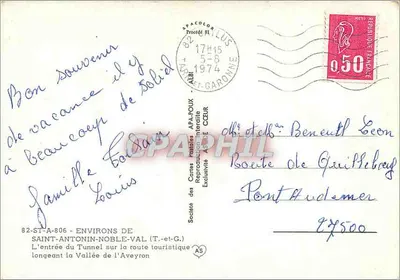 Bon souvenir
de vacance il y
à beaucoup de soleil
famille
Louis
82-ST-A-806 - ENVIRONS DE
SAINT-ANTONIN-NOBLE-VAL (T.-et-G.)
L'entrée du Tunnel sur la route touristique
longeant la Vallée de l'Aveyron
APACOLOR
Société des Cartes Postales APA-POUX - ALBI
Reproduction interdite
Exclusivité APA COEUR
AS
82
17H15
5-8
1974
GARONNE
0,50
REPUBLIQUE FRANÇAISE
CPAPHIL
Mr et Mme Beneult Léon
Route de
Pont Audemer
27500